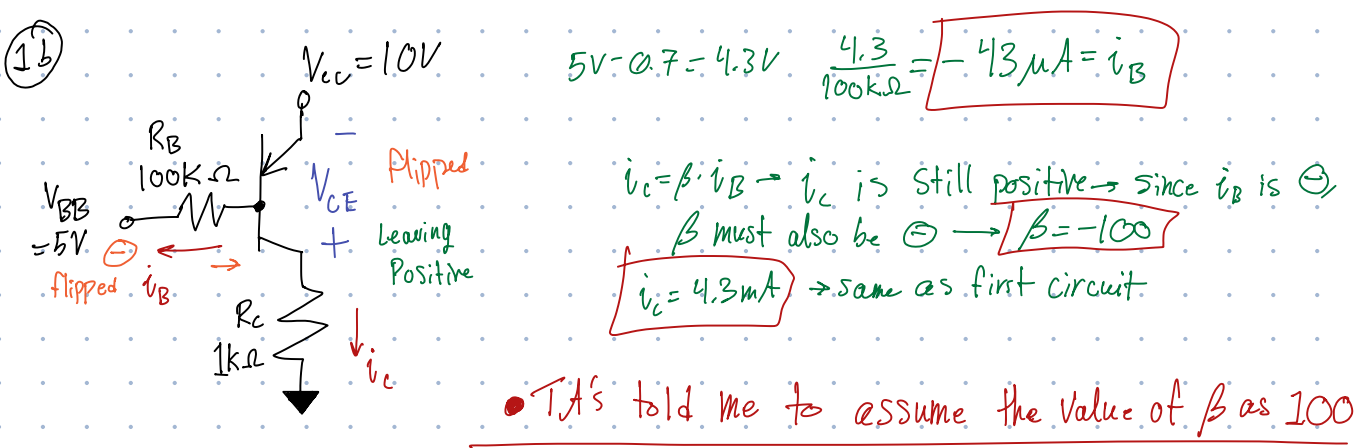 1b
V_CC = 10V
R_B
100KΩ
V_BB
= 5V
⊖
flipped i_B
−
V_CE
+
flipped
Leaving
Positive
R_C
1KΩ
i_C
5V - 0.7 = 4.3V 4.3/100KΩ = -43μA = i_B
i_C = β · i_B → i_C is still positive → since i_B is ⊖,
β must also be ⊖ → β = -100
i_C = 4.3mA → same as first circuit
• TA's told me to assume the value of β as 100